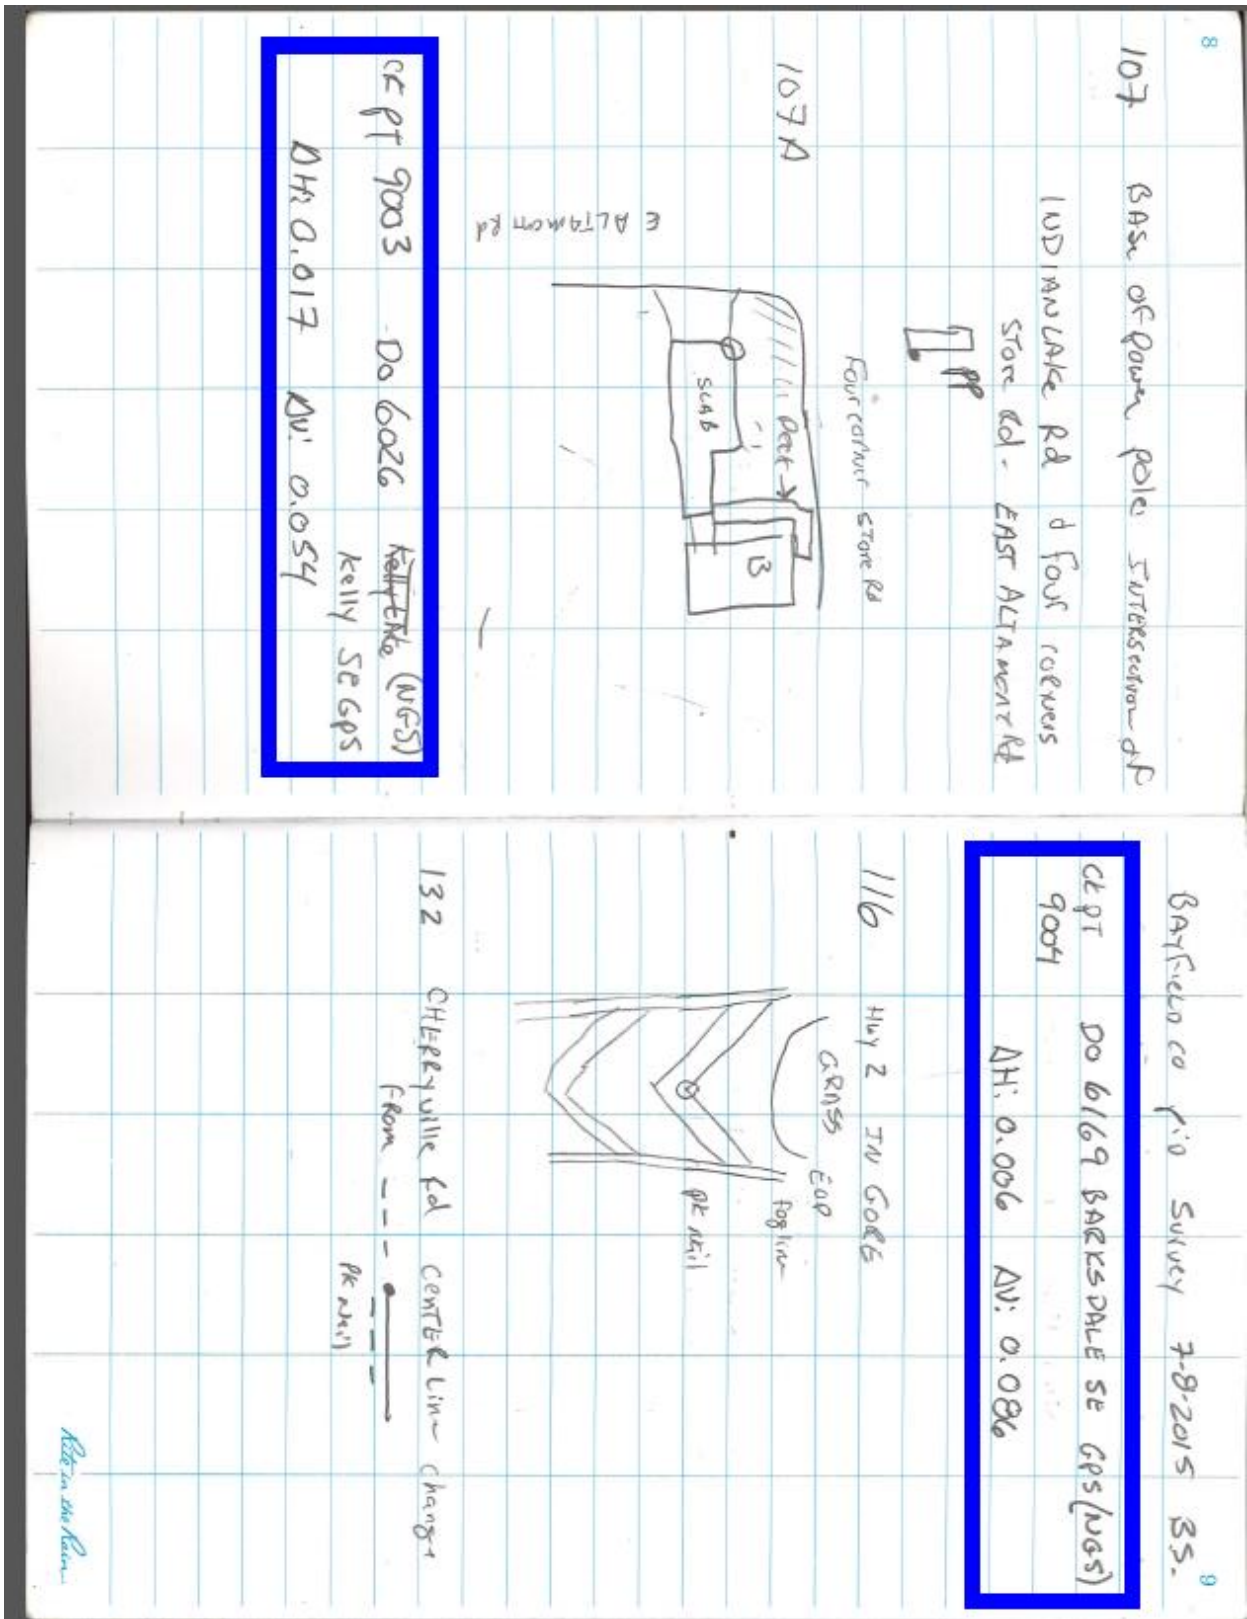 8
107 BASE of power pole, INTERSECTION of
INDIAN LAKE Rd & four corners
Store Rd - EAST ALTAMONT Rd
PP
107A
Four corner store Rd
Deck
SLAB
B
E ALTAMONT Rd
CK PT 9003 DO 6026 (NGS)
Kelly SE GPS
ΔH: 0.017 ΔV: 0.054
9
BAYFIELD CO Survey 7-8-2015 BS.
CK PT DO 6169 BARKSDALE SE GPS (NGS)
9004
ΔH: 0.006 ΔV: 0.086
116 Hwy 2 IN GORE
GRASS
EOP
Fogline
PK Nail
132 CHERRYVILLE Rd CENTER Line change
From
PK Nail
Rite in the Rain